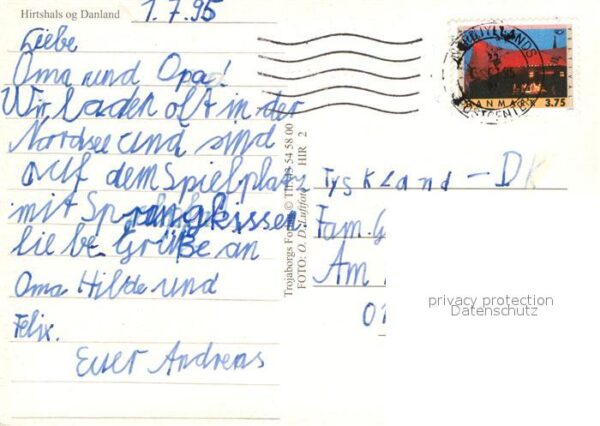 Hirtshals og Danland
1.7.95
Liebe
Oma und Opa!
Wir baden oft in der
Nordsee und sind
auf dem Spielplatz
mit Sprungkissen.
liebe Grüße an
Oma Hilde und
Felix.
Euer Andreas
Trojaborgs For © Tlf. 45 54 58 00
FOTO: O. D. Luftfoto HIR 2
NORDJYLLANDS
POSTCENTER
DANMARK 3.75
Tyskland - DK
Fam. G
Am
01
privacy protection
Datenschutz